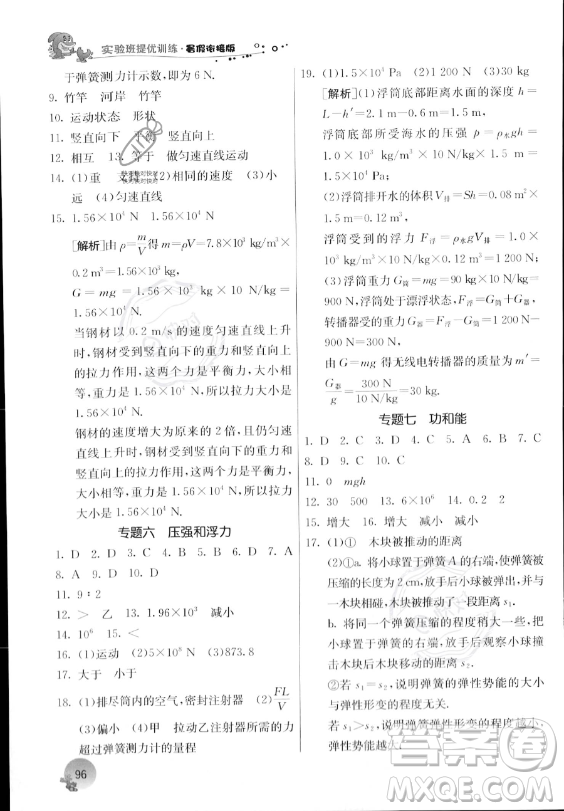 实验班提优训练·暑假衔接版
于弹簧测力计示数，即为 6 N.
9. 竹竿 河岸 竹竿
10. 运动状态 形状
11. 竖直向下 平衡 竖直向上
12. 相互 13. 等于 做匀速直线运动
14. (1)重 (2)相同的速度 (3)小
远 (4)匀速直线
15. 1.56×10⁴ N 1.56×10⁴ N
[解析]由ρ=m/V得 m=ρV=7.8×10³ kg/m³×
0.2 m³=1.56×10³ kg,
G=mg=1.56×10³ kg×10 N/kg=
1.56×10⁴ N.
当钢材以 0.2 m/s 的速度匀速直线上升
时,受到竖直向下的重力和竖直向上
的拉力作用,这两个力是平衡力,大小
相等,重力是 1.56×10⁴ N,所以拉力大
小是 1.56×10⁴ N.
钢材的速度增大为原来的 2 倍,且仍匀速
直线上升时,受到竖直向下的重力和竖直
向上的拉力作用,这两个力是平衡力,
大小相等,重力是 1.56×10⁴ N,所以拉力
大小是 1.56×10⁴ N.
专题六 压强和浮力
1. D 2. D 3. C 4. B 5. D 6. B 7. A
8. A 9. D 10. D
11. 9∶2
12. > 乙 13. 1.96×10³ 减小
14. 10⁶ 15. 变大 不变
16. (1)运动 (2)小 (3)873.8
17. 大于 小于
18. (1)排尽筒内的空气,密封注射器 (2)FL/V
(3)偏小 (4)甲 拉动乙注射器所需的力
超过弹簧测力计的量程
96
19. (1)1.5×10⁴ Pa (2)1 200 N (3)30 kg
[解析](1)浮筒底部距离水面的深度 h=
L−h′=2.1 m−0.6 m=1.5 m,
浮筒底部所受海水的压强 p=ρ水gh=
1.0×10³ kg/m³×10 N/kg×1.5 m=
1.5×10⁴ Pa;
(2)浮筒排开水的体积 V排=Sh=0.08 m²×
1.5 m=0.12 m³,
浮筒受到的浮力 F浮=ρ水gV排=1.0×
10³ kg/m³×10 N/kg×0.12 m³=
1 200 N;
(3)浮筒重力 G筒=mg=90 kg×10 N/kg=
900 N,浮筒处于漂浮状态,F浮=G筒+G器,
转播器受到的重力 G器=F浮−G筒=1 200 N−
900 N=300 N,
由 G=mg 得无线电转播器的质量 m′=
G器/g=300 N/10 N/kg=30 kg.
专题七 功和能
1. D 2. C 3. D 4. C 5. B 6. D 7. C
8. D 9. C 10. C
11. 0 mgh
12. 30 500 13. 6×10⁶ 14. 0.2 2
15. 增大 16. 增大 减小 减小
17. (1)① 木块被推动的距离
(2)①a. 将小球置于弹簧 A 的右端,使弹簧被
压缩的长度为 2 cm,放手后小球被弹开与
一木块相碰,木块被推动了一段距离 s₁
b. 将同一弹簧压缩的程度稍大些,把
小球置于右端,放手后观察小球撞
击木块后,木块移动的距离 s₂
②若 s₁=s₂,说明弹簧的弹性势能的大小与
弹性形变的程度无关.
若 s₁<s₂,说明弹簧的弹性形变越大,弹
性势能越大.
答案圈
MXQE.COM